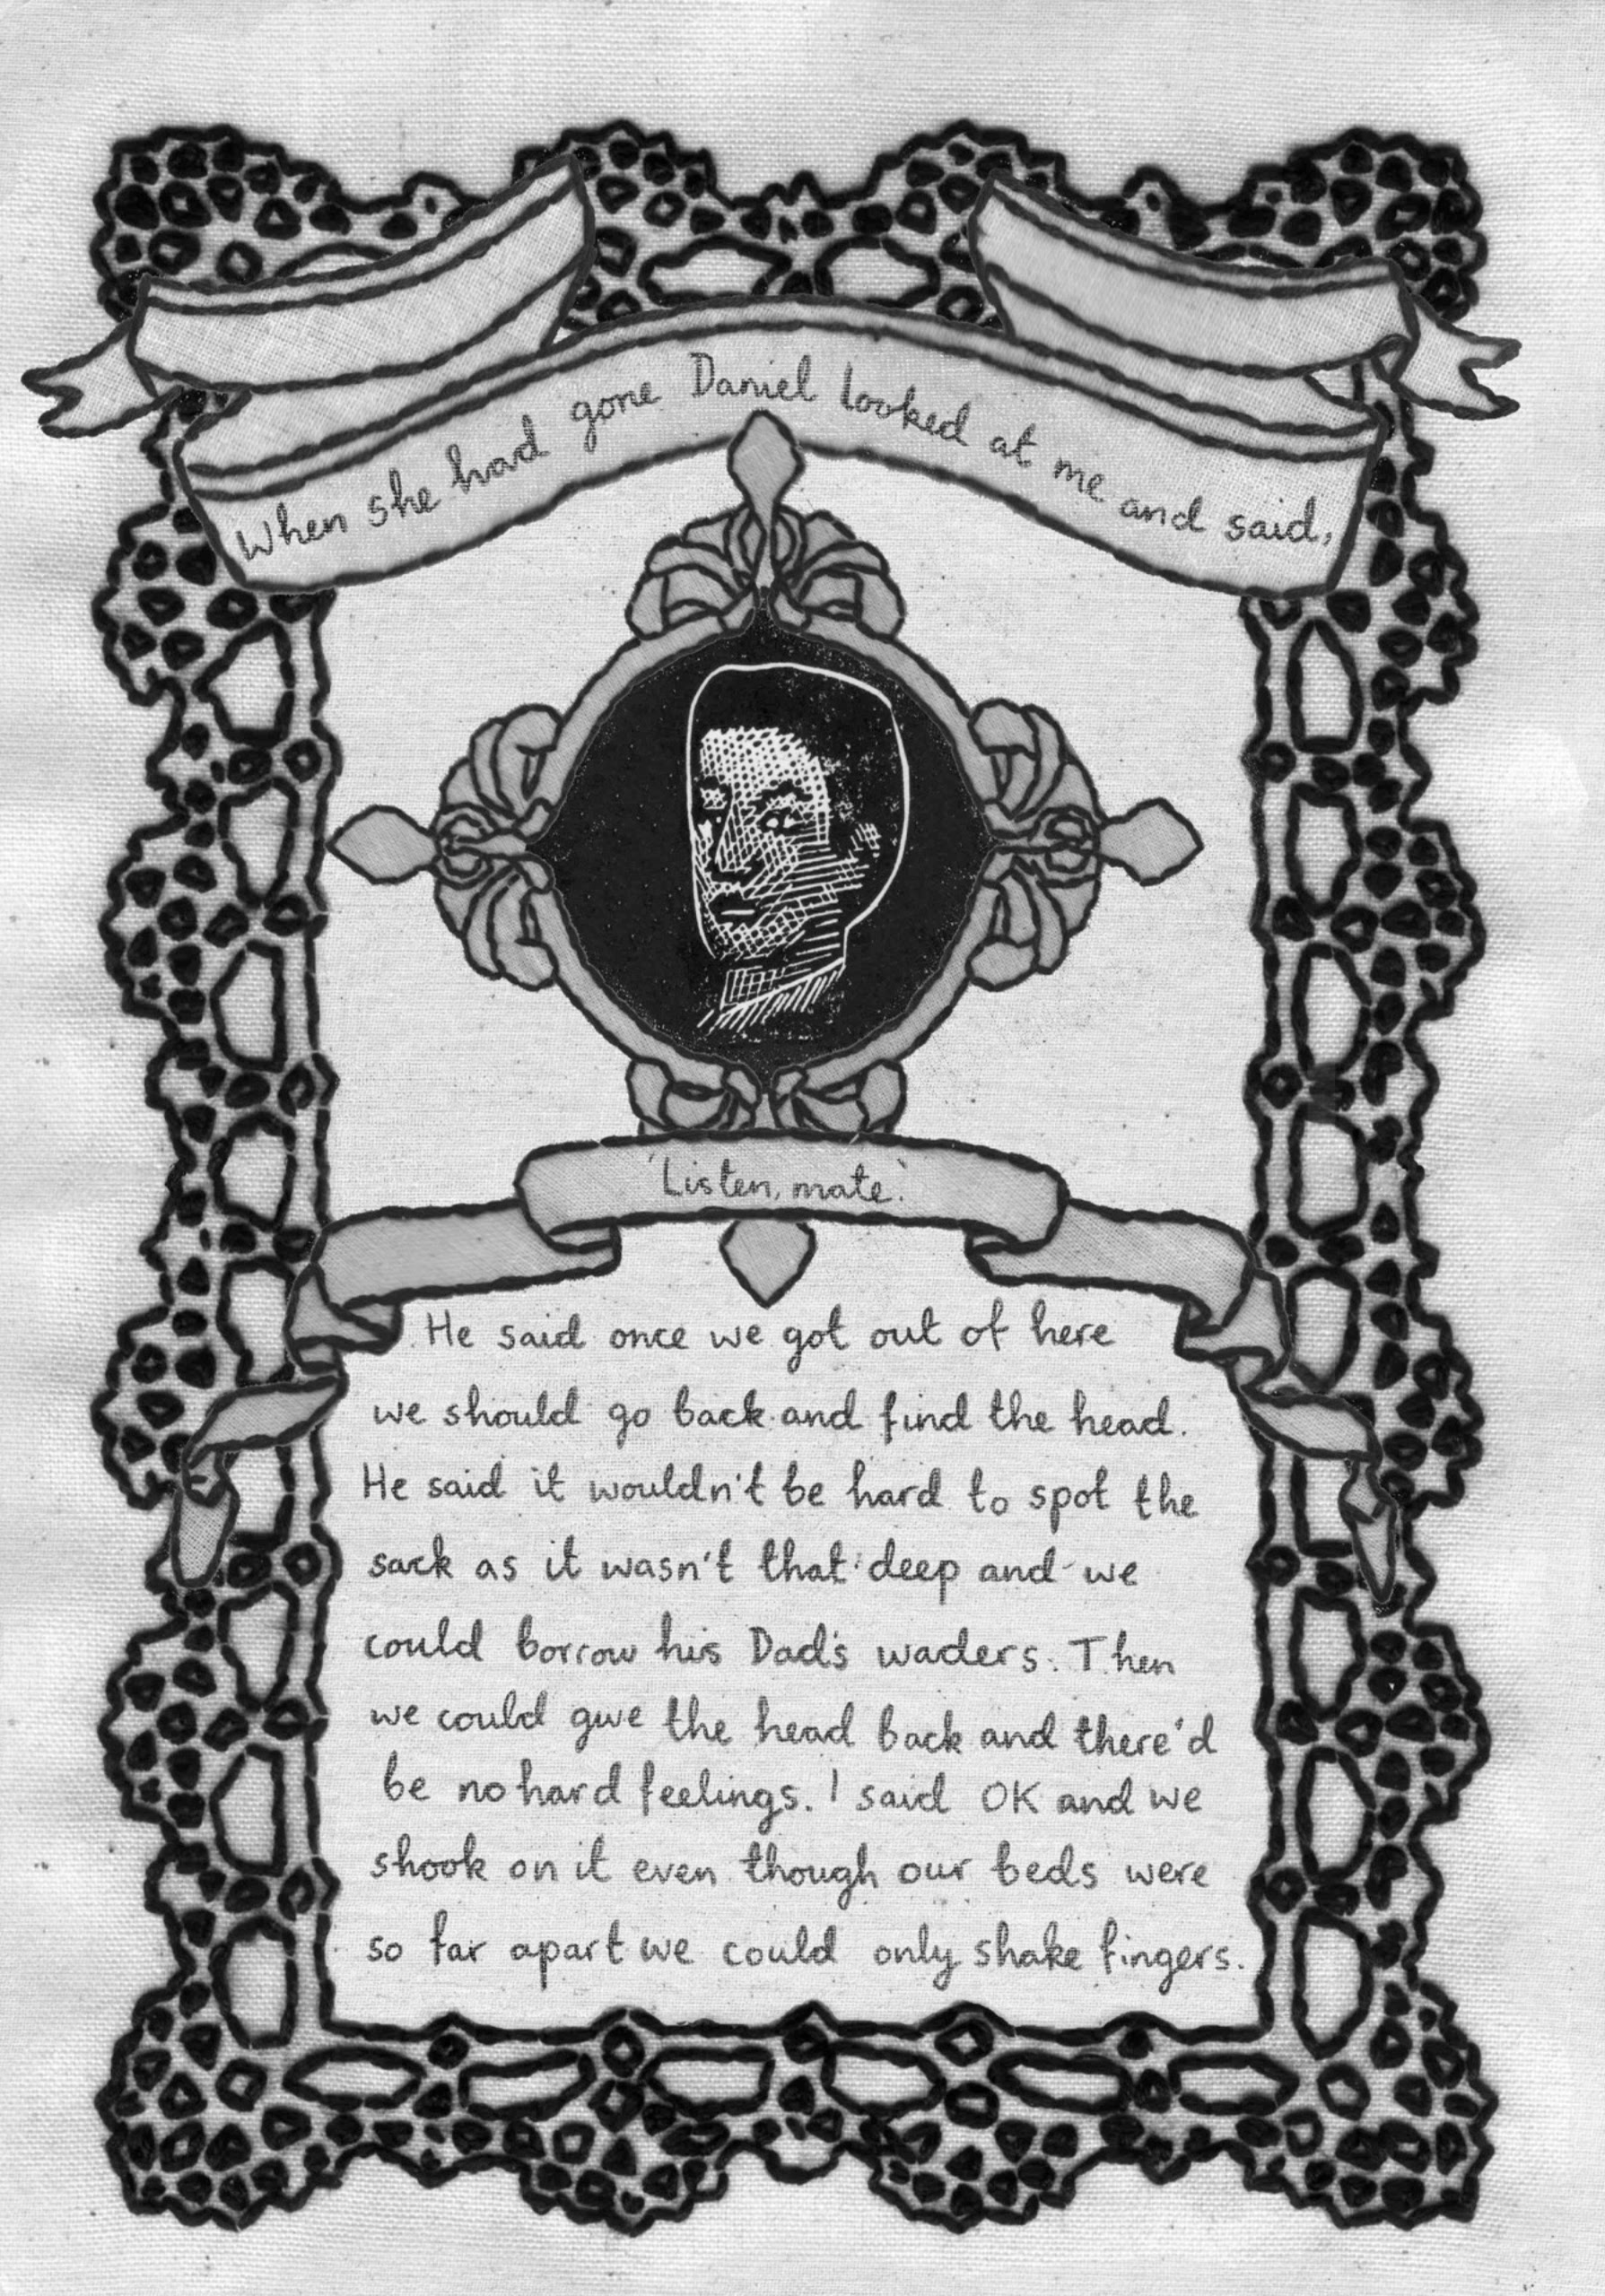 When she had gone Daniel looked at me and said,
'Listen, mate.'
He said once we got out of here
we should go back and find the head.
He said it wouldn't be hard to spot the
sack as it wasn't that deep and we
could borrow his Dad's waders. Then
we could give the head back and there'd
be no hard feelings. I said OK and we
shook on it even though our beds were
so far apart we could only shake fingers.